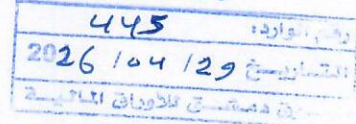 رقم الوارد: 445
التاريخ 2026/04/29
سوق دمشق للأوراق المالية